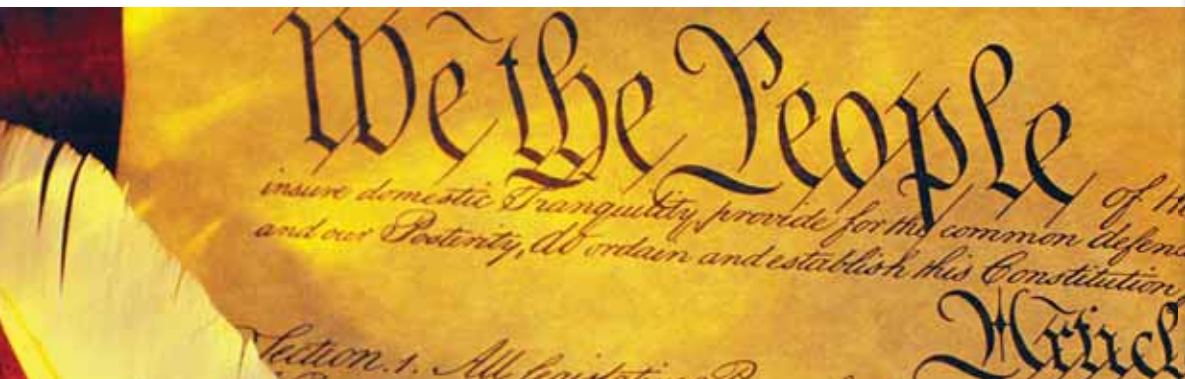 We the People of the
insure domestic Tranquility, provide for the common defence
and our Posterity, do ordain and establish this Constitution
Article
Section. 1. All legislative